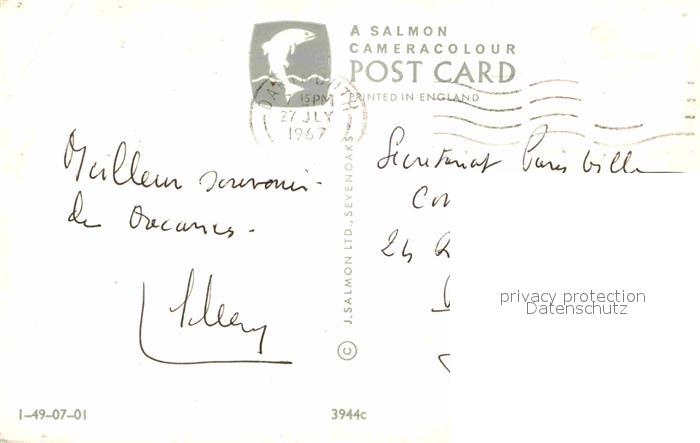 A SALMON
CAMERACOLOUR
POST CARD
PRINTED IN ENGLAND
7 15 PM
27 JLY
1967
Meilleur souvenir
de vacances.
Secretariat Paris Ville
24
© J. SALMON LTD., SEVENOAKS
privacy protection
Datenschutz
1-49-07-01
3944c